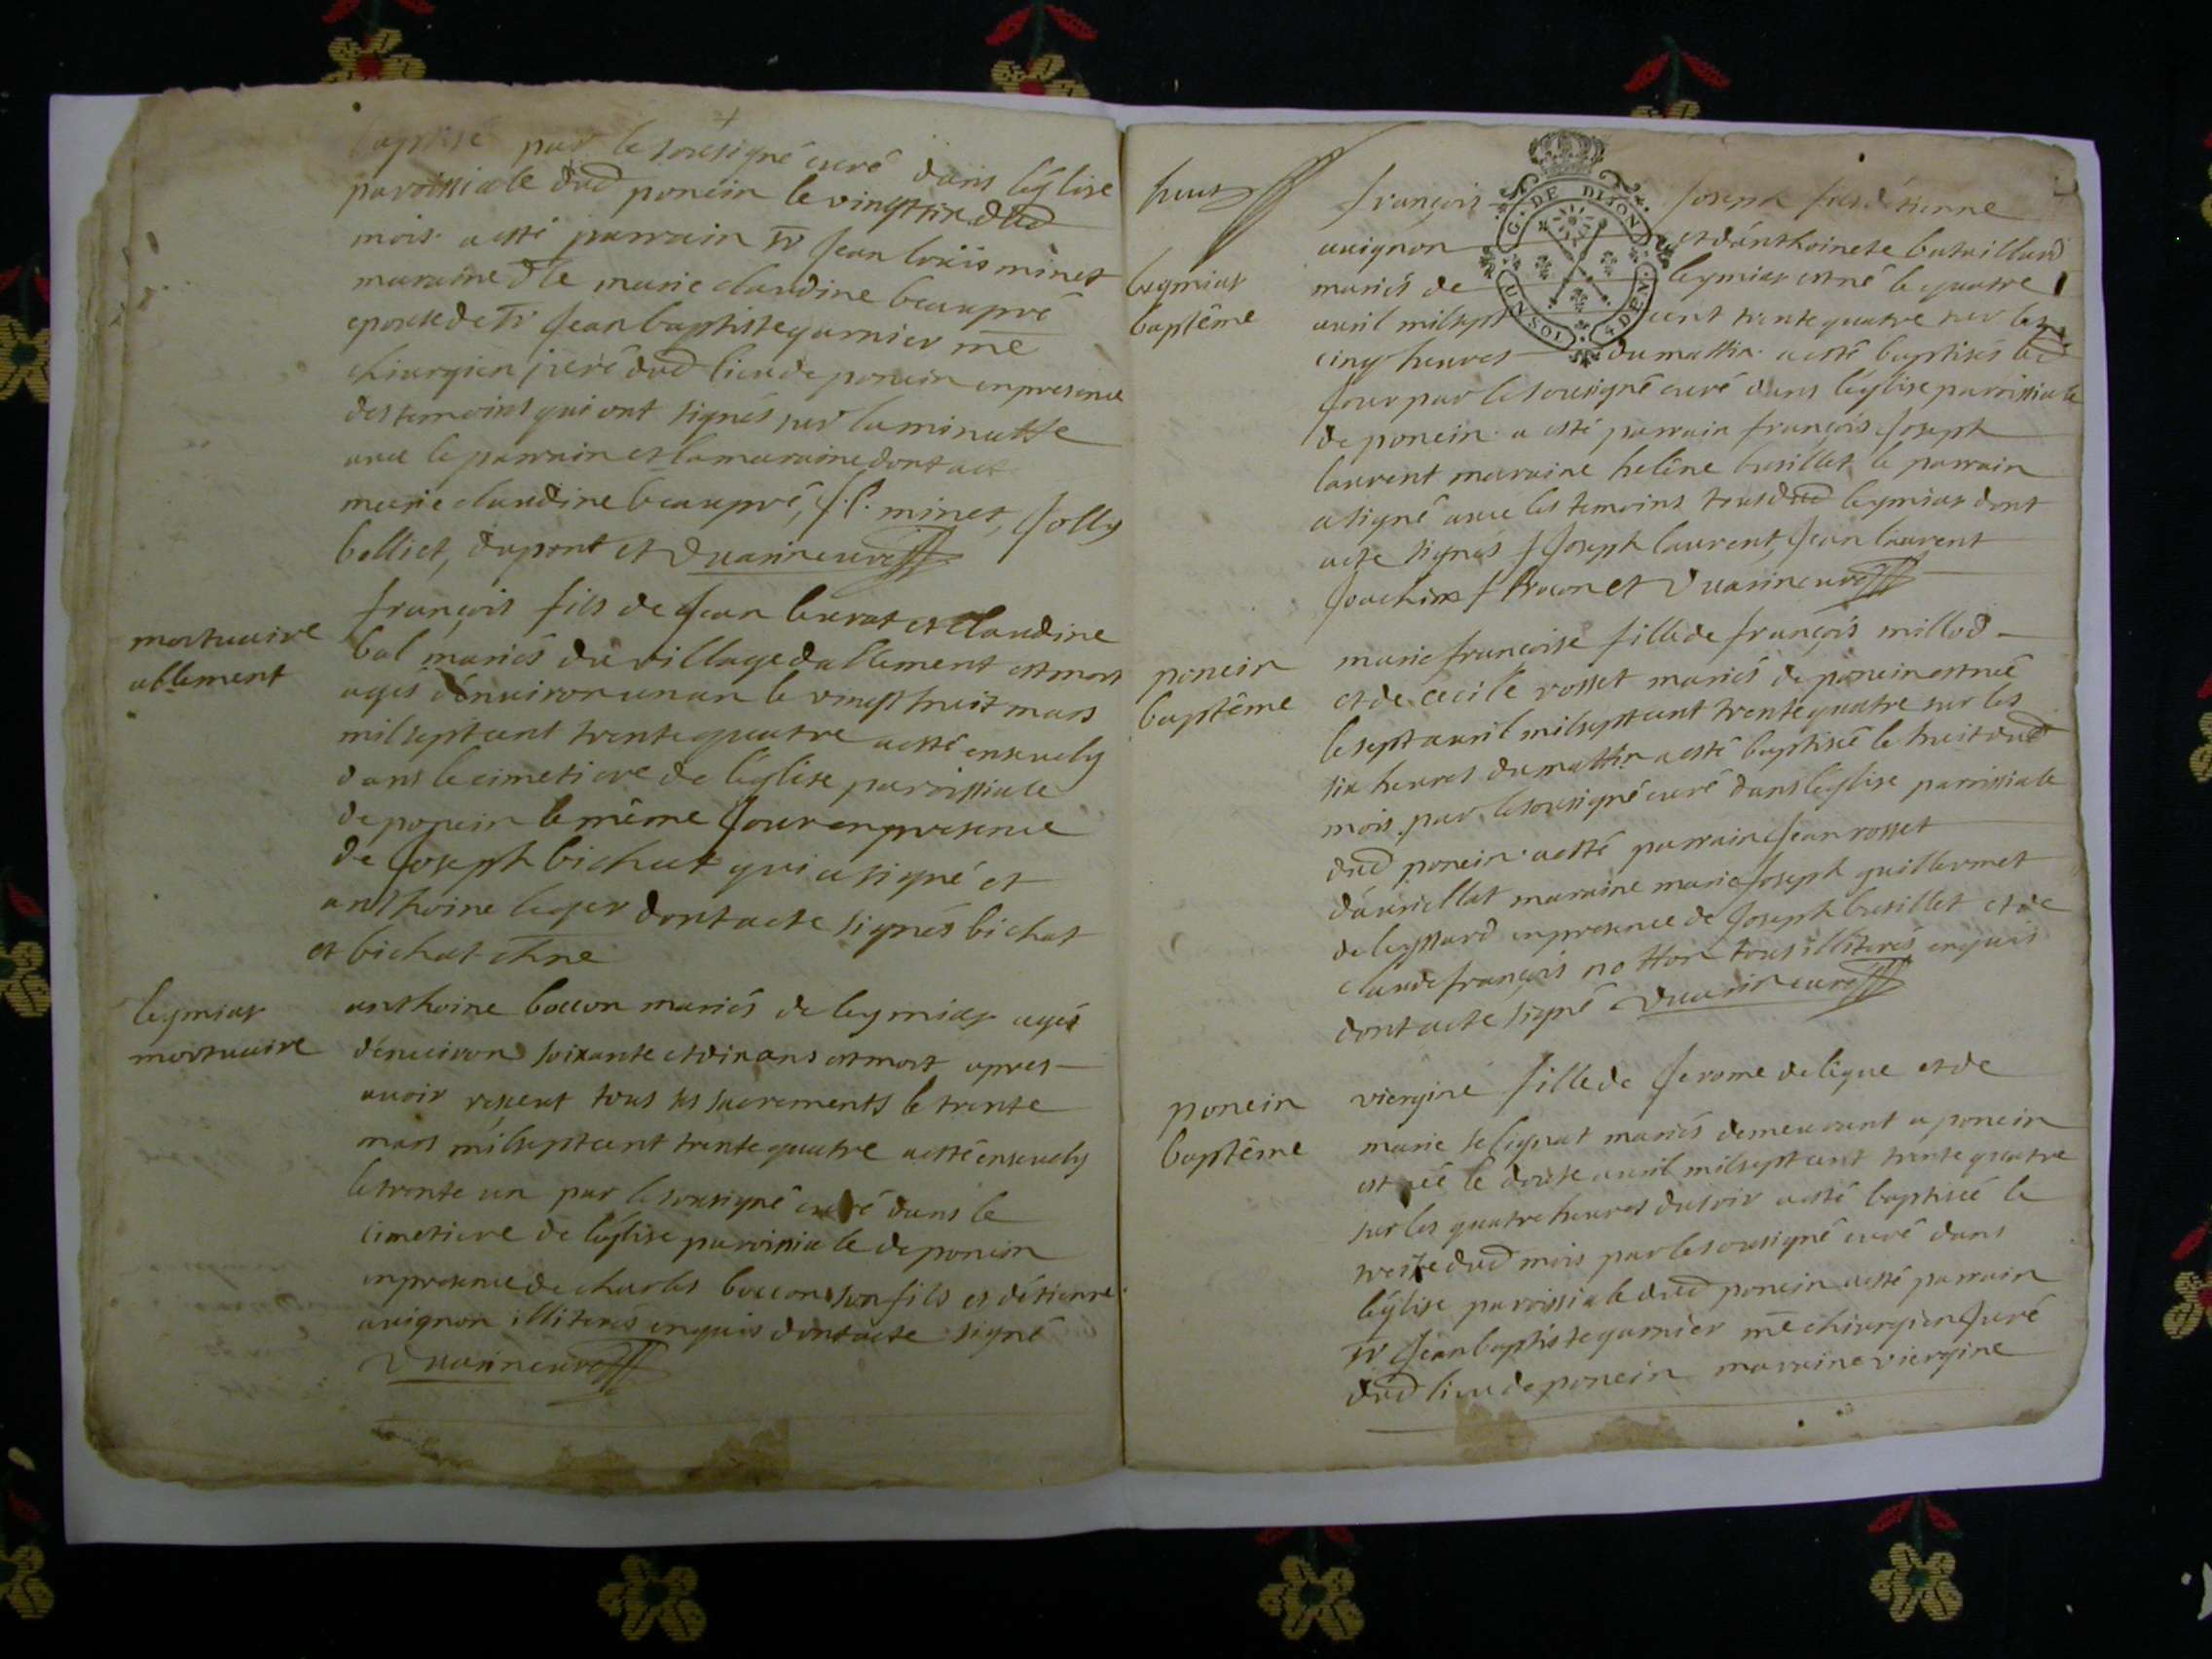 baptisé par le sousigné curé dans l'église
paroissiale dud poncin le vingtsix dud
mois a esté parrain sr Jean loüis minet
maraine dlle marie claudine beaupré
epouse de sr Jean baptiste garnier me
chirurgien juré dud lieu de poncin en presence
des temoins qui ont signés sur la minutte
avec le parrain et la maraine dont acte
marie claudine beaupré, J. l. minet, Jolly
belliet, dupont et Duarin curé
mortuaire
allement
françois fils de Jean burat et claudine
bal mariés du village dallement est mort
agés d'enuiron un an le vingt huit mars
mil sept cent trente quatre a esté enseuely
dans le cimetiere de l'église paroissiale
de poncin le même Jour en presence
de Joseph bichat qui a signé et
anthoine leger dont acte signés bichat
et bichat
leymiat
mortuaire
anthoine bocon mariés de leymiat agés
d'enuiron soixante et dix ans est mort apres
auoir reseut tous ses sacrements le trente
mars mil sept cent trente quatre a esté enseuely
le trente un par le sousigné curé dans le
cimetiere de l'église paroissiale de poncin
en presence de charles bocon son fils et d'étienne
auignon illiterés enquis dont acte signé
Duarin curé
huit
leymiat
baptême
G. DE DIJON
UN SOL 4 DEN.
françois Joseph fils d'étienne
auignon et d'anthoinete bataillard
mariés de leymiat est né le quatre
auril mil sept cent trente quatre sur les
cinq heures du mattin a esté baptisés led
Jour par le sousigné curé dans l'église paroissiale
de poncin a esté parrain françois Joseph
laurent maraine helêne brsillet le parrain
a signé auec les temoins tous dud leymiat dont
acte signés f Joseph laurent, Jean laurent
Joachim et Duarin curé
poncin
baptême
marie francoise fille de françois millod
et de cecile rosset mariés de poncin est née
le sept auril mil sept cent trente quatre sur les
six heures du mattin a esté baptisée le huit dud
mois par le sousigné curé dans l'église paroissiale
dud poncin a esté parrain Jean rosset
maraine marie Joseph guillermet
de leyssard en presence de Joseph brsillet et de
claude françois notton tous illiterés enquis
dont acte signé Duarin curé
poncin
baptême
viergine fille de Jerome deligue et de
marie selignat mariés demeurant a poncin
est née le douse auril mil sept cent trente quatre
sur les quatre heures du soir a esté baptisée le
treise dud mois par le sousigné curé dans
l'église paroissiale dud poncin a esté parrain
sr Jean baptiste garnier me chirurgien juré
dud lieu de poncin maraine viergine